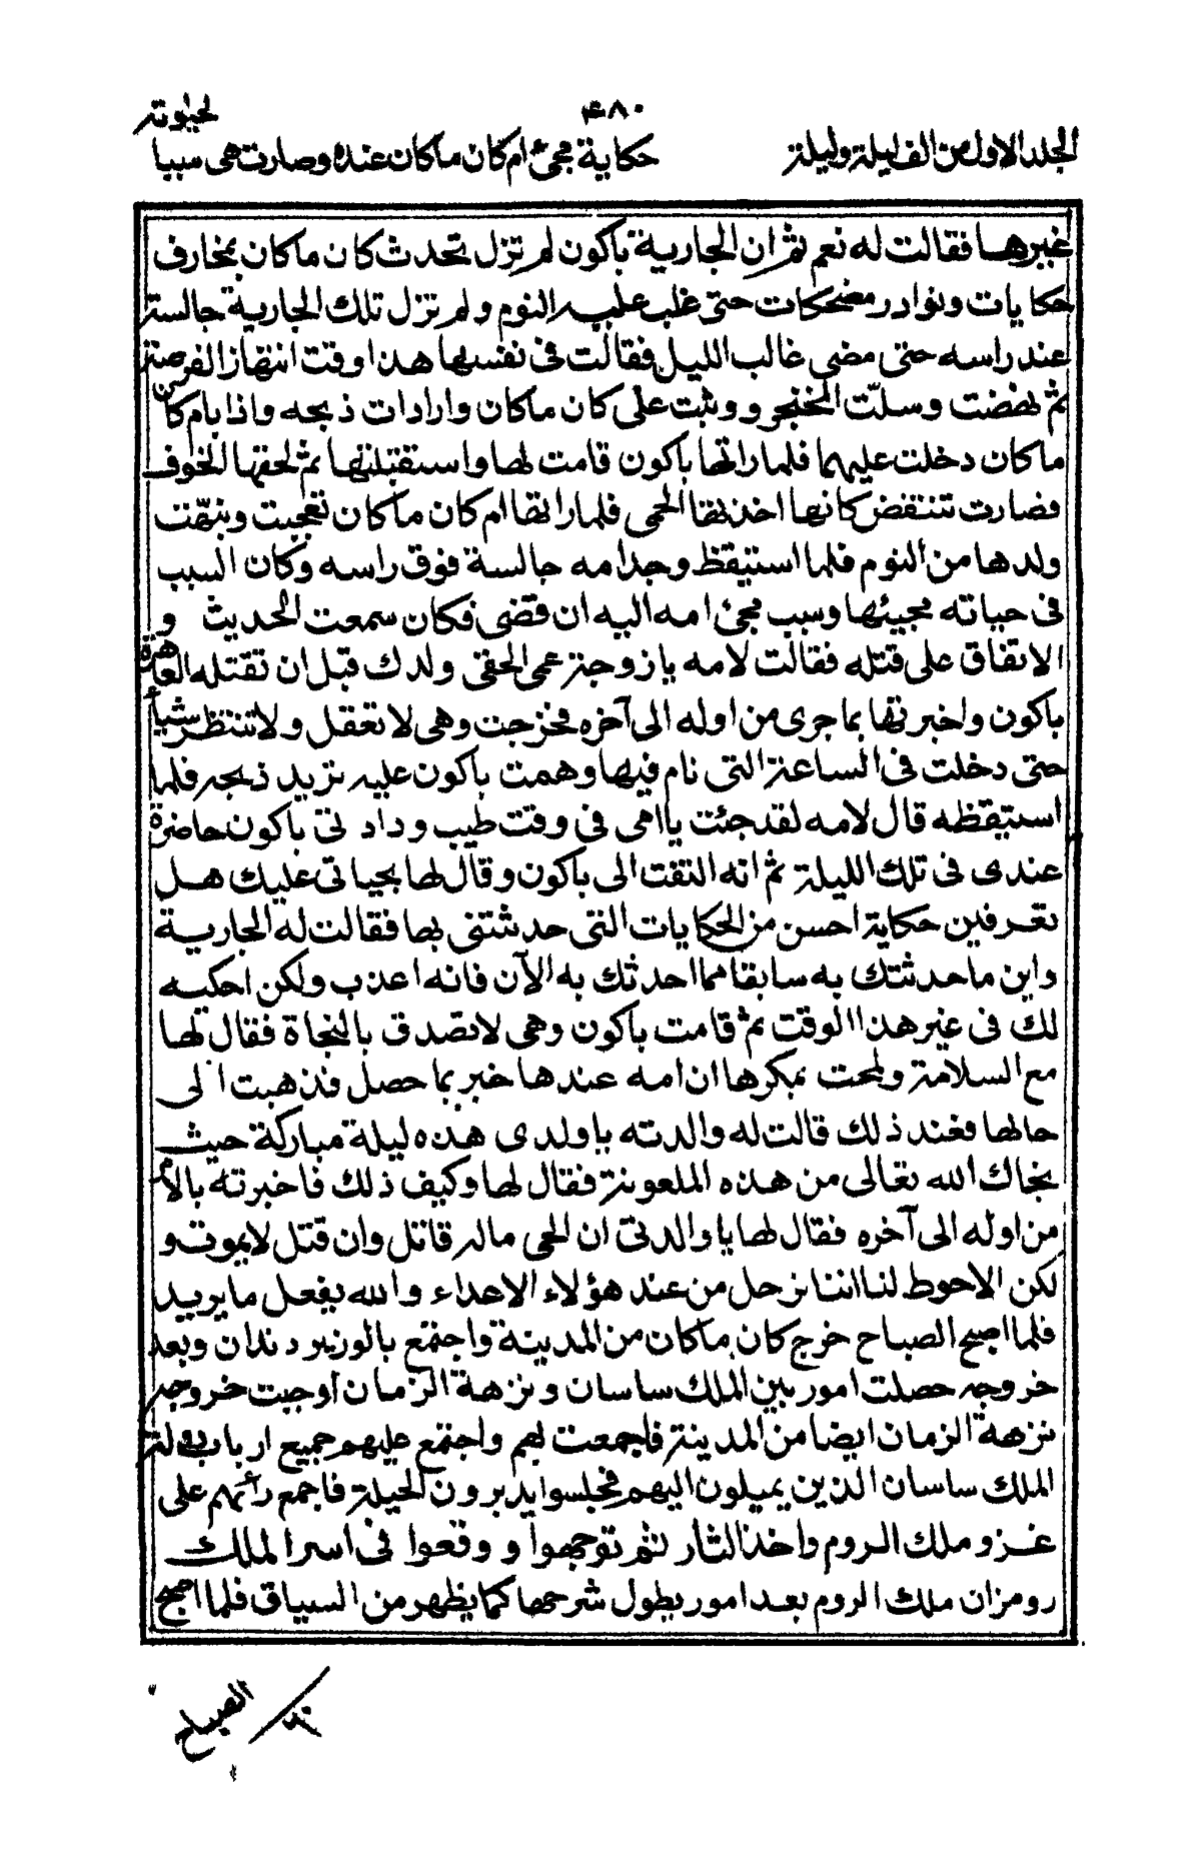 ٤٨٠
لحيوته
الجلد الاول من الف ليلة وليلة
حكاية مجئ ام كان ماكان عنده وصارت هى سببا
غيرها فقالت له نعم ثم ان الجارية باكون لم تزل تحدث كان ماكان بمخارف
حكايات ونوادر مضحكات حتى غلب عليه النوم ولم تزل تلك الجارية جالسة
عند راسه حتى مضى غالب الليل فقالت فى نفسها هذا وقت انتهاز الفرصة
ثم نهضت وسلّت الخنجر ووثبت على كان ماكان وارادات ذبحه واذا بام كان
ماكان دخلت عليهما فلما راتها باكون قامت لها واستقبلتها ثم لحقها الخوف
فصارت تنتفض كانها اخذتها الحمى فلما راتها ام كان ماكان تعجبت ونبّهت
ولدها من النوم فلما استيقظ وجد امه جالسة فوق راسه وكان السبب
فى حياته مجيئها وسبب مجئ امه اليه ان قضى فكان سمعت الحديث و
الاتفاق على قتله فقالت لامه يا زوجة عمى الحقى ولدك قبل ان تقتله العاهرة
باكون واخبرتها بما جرى من اوله الى آخره فخرجت وهى لا تعقل ولا تنتظر شيأ
حتى دخلت فى الساعة التى نام فيها وهمت باكون عليه تريد ذبحه فلما
استيقظه قال لامه لقد جئت يا امى فى وقت طيب ودادتى باكون حاضرة
عندى فى تلك الليلة ثم انه التفت الى باكون وقال لها بحياتى عليك هل
تعرفين حكاية احسن من الحكايات التى حدثتنى بها فقالت له الجارية
واين ما حدثتك به سابقا مما احدثك به الآن فانه اعذب ولكن احكيه
لك فى غير هذا الوقت ثم قامت باكون وهى لا تصدق بالنجاة فقال لها
مع السلامة ولمحت بمكرها ان امه عندها خبر بما حصل فذهبت الى
حالها فعند ذلك قالت له والدته يا ولدى هذه ليلة مباركة حيث
نجاك الله تعالى من هذه الملعونة فقال لها وكيف ذلك فاخبرته بالأمر
من اوله الى آخره فقال لها يا والدتى ان الحى ماله قاتل وان قتل لا يموت و
لكن الاحوط لنا اننا نرحل من عند هؤلاء الاعداء والله يفعل ما يريد
فلما اصبح الصباح خرج كان ماكان من المدينة واجتمع بالوزير دندان وبعد
خروجه حصلت امور بين الملك ساسان ونزهة الزمان اوجبت خروجه
نزهة الزمان ايضا من المدينة فاجمعت بهم واجتمع عليهم جميع ارباب دولة
الملك ساسان الذين يميلون اليهم فجلسوا يدبرون الحيلة فاجمع رأيهم على
غزو ملك الروم واخذ الثار ثم توجهوا ووقعوا فى اسر الملك
رومزان ملك الروم بعد امور يطول شرحها كما يظهر من السياق فلما اصبح
الصباح